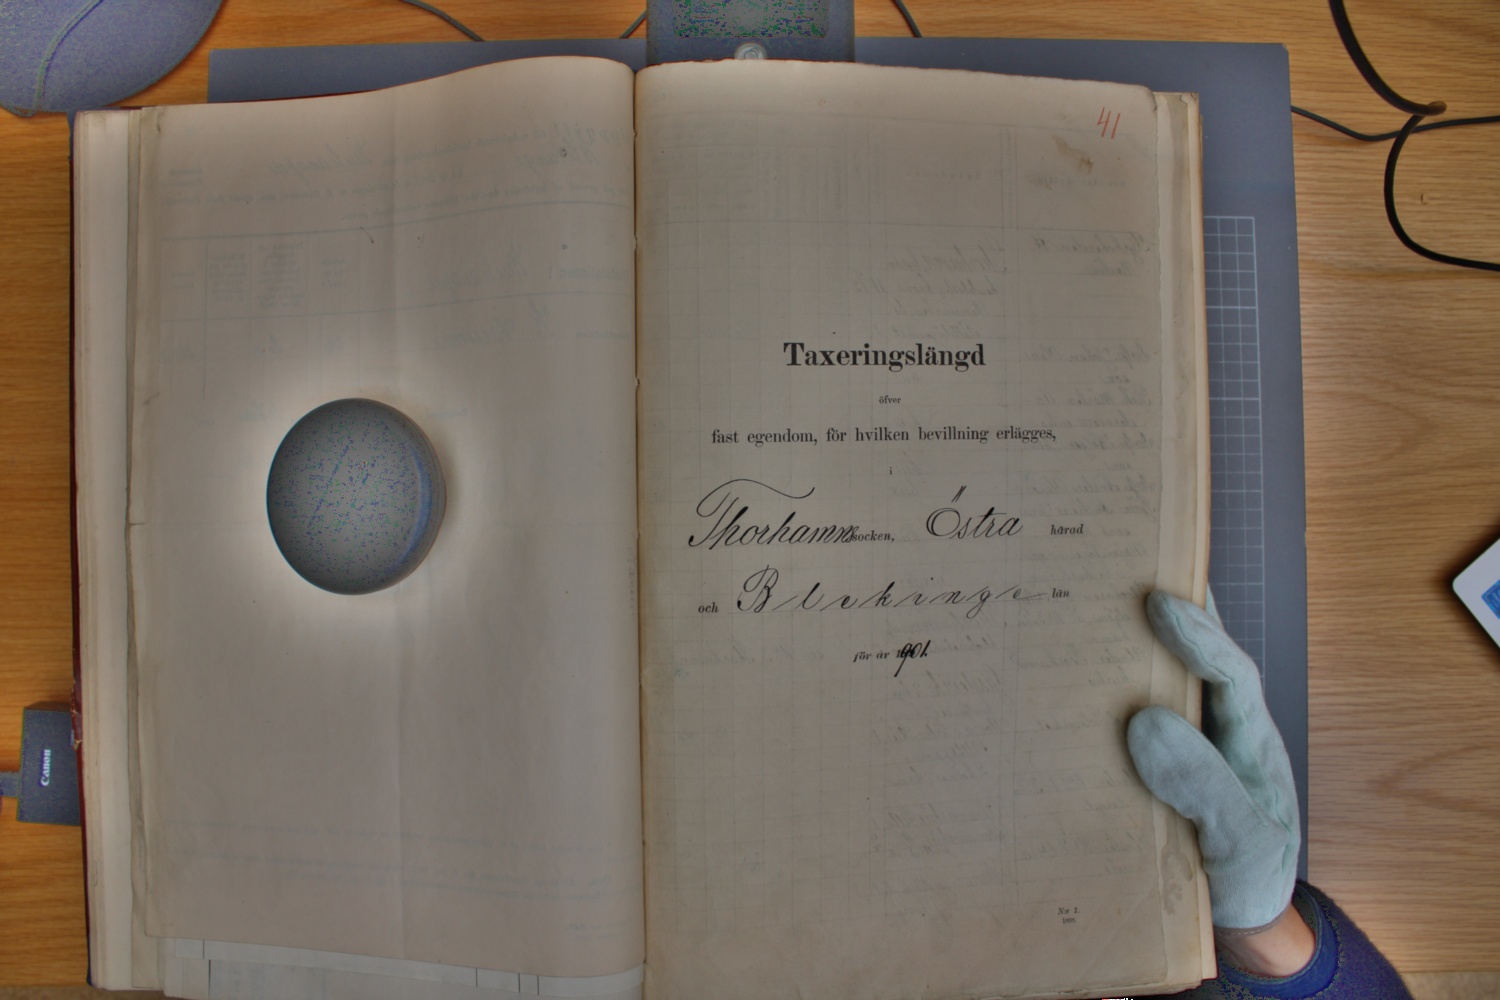 41
Taxeringslängd
öfver
fast egendom, för hvilken bevillning erlägges,
i
Thorhamns socken, Östra härad
och Blekinge län
för år 1901.
N:r 1.
Canon